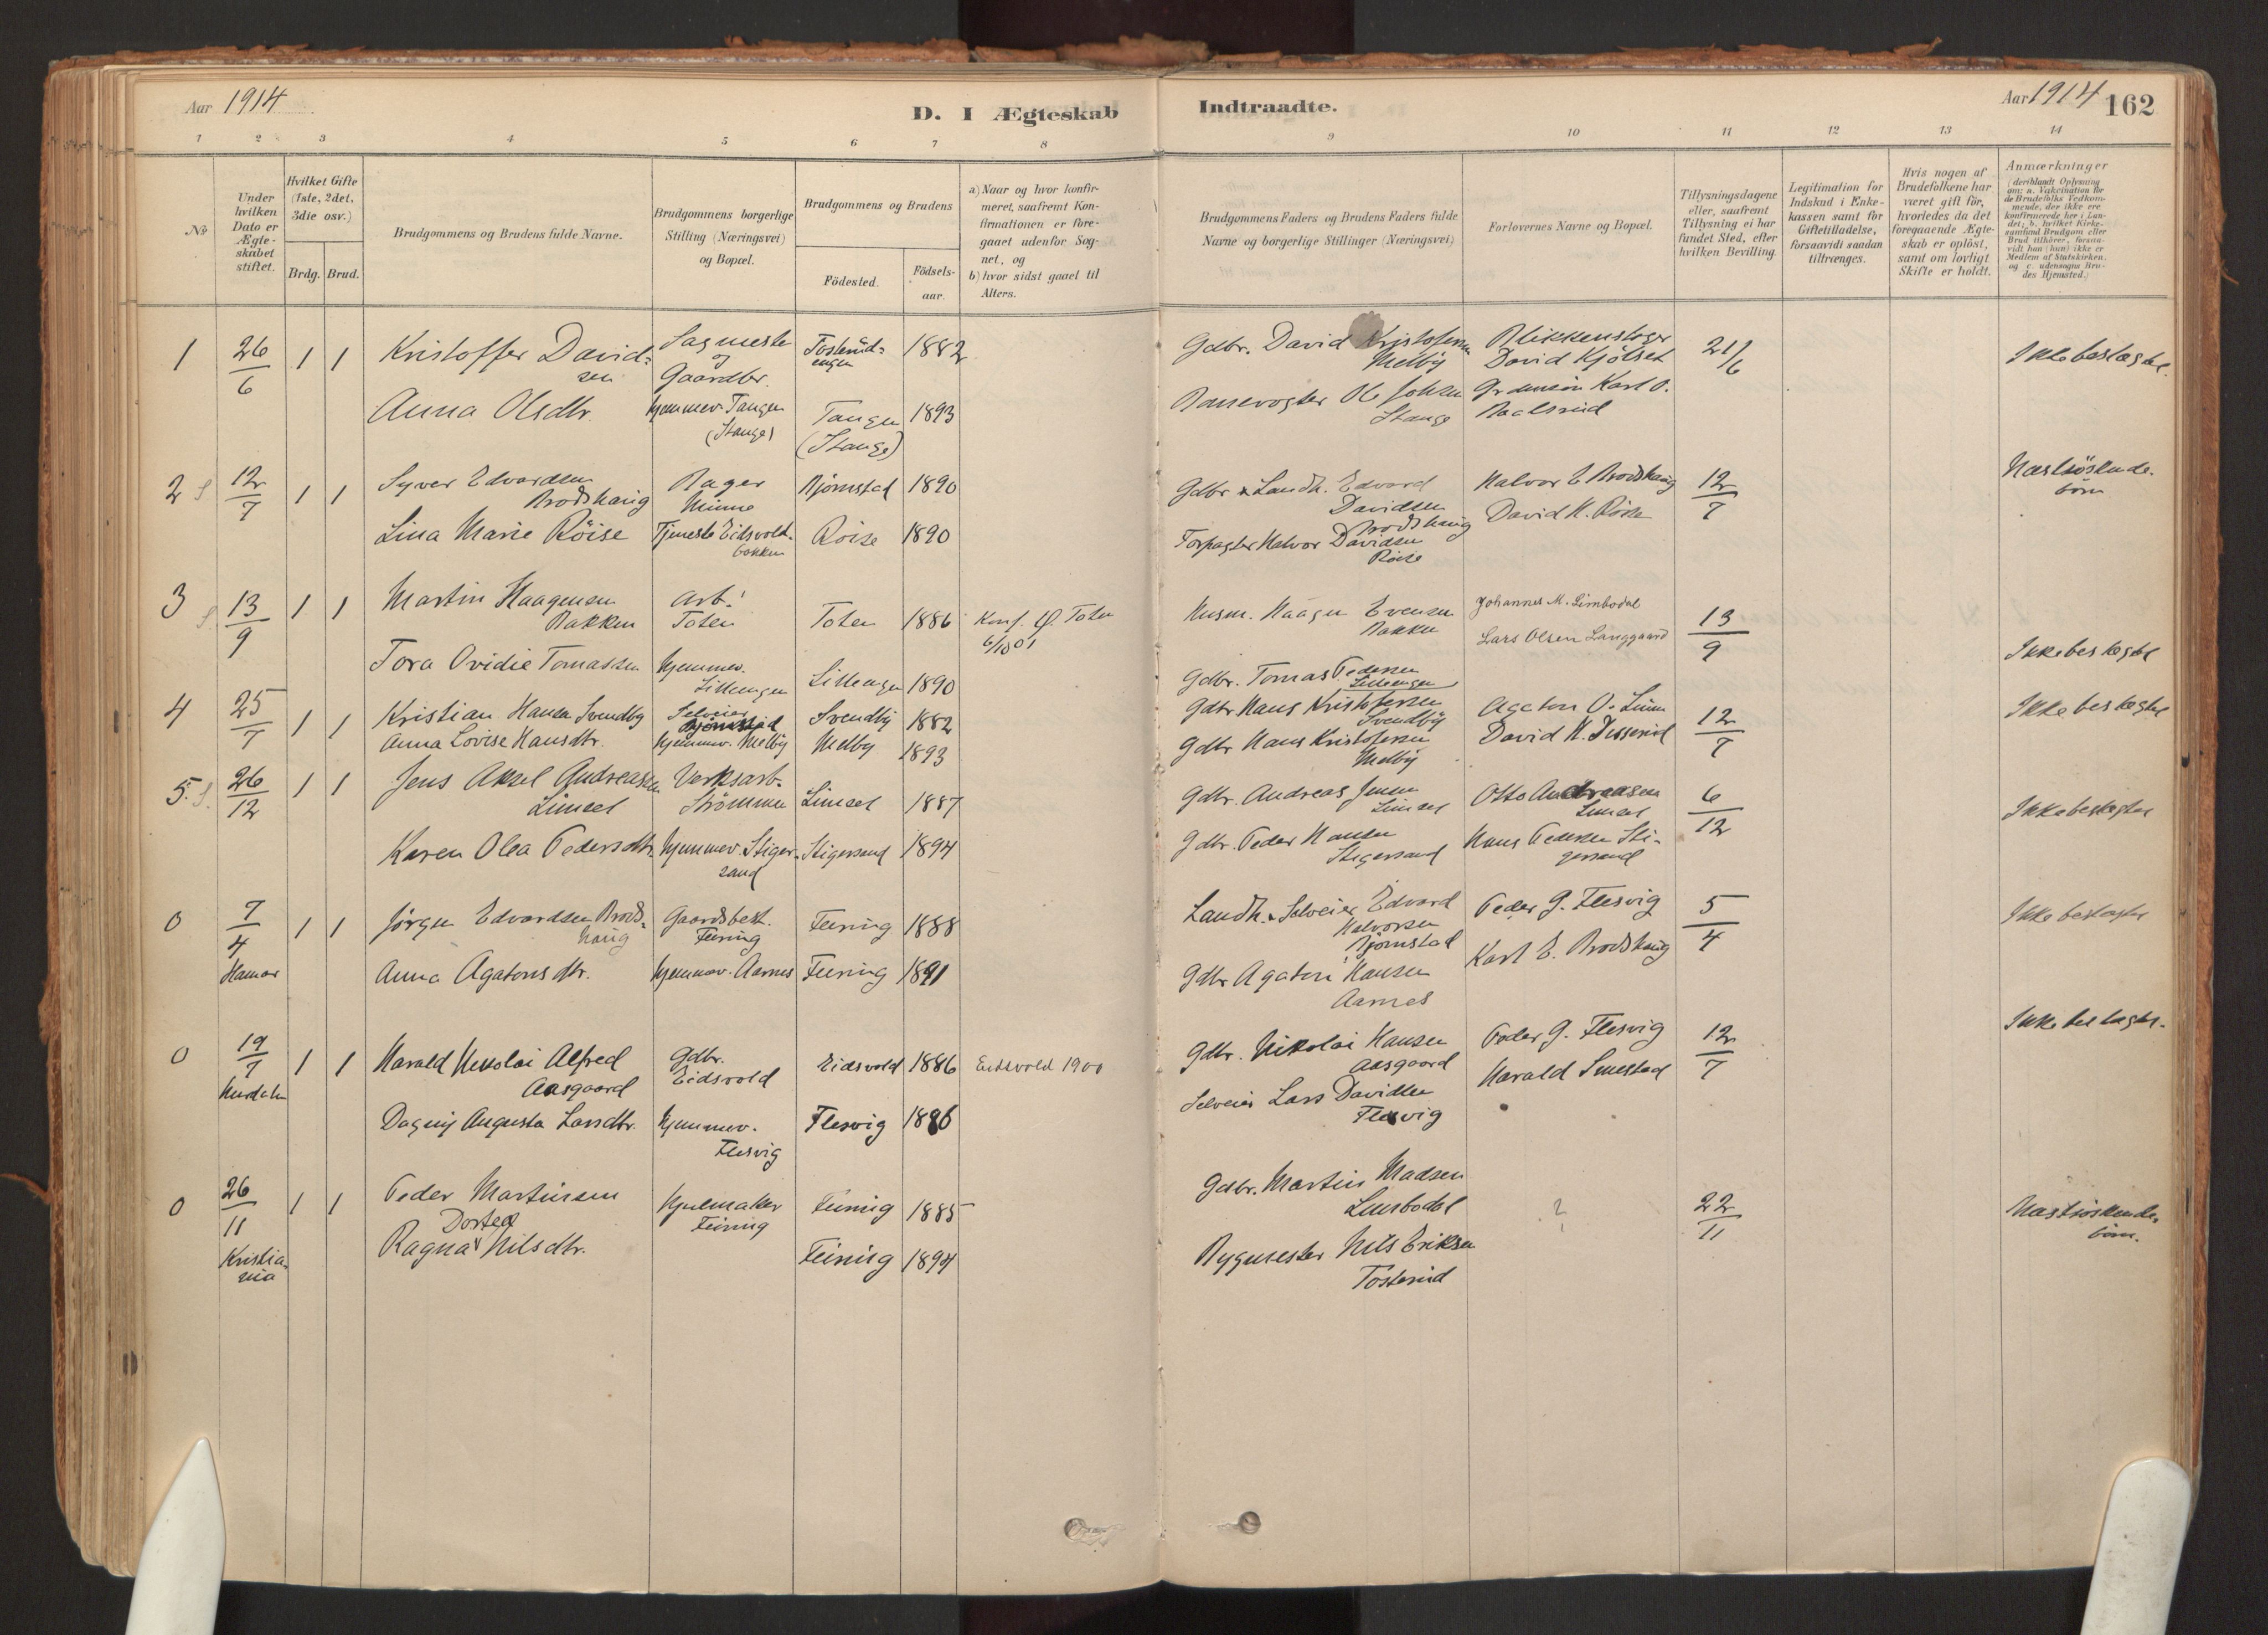 Aar 1914
D. I Ægteskab Indtraadte.
Aar 1914 162
1 2 3 4 5 6 7 8 9 10 11 12 13 14
No
Under hvilken Dato er Ægteskabet stiftet.
Hvilket Gifte (1ste, 2det, 3die osv.)
Brdg. Brud.
Brudgommens og Brudens fulde Navne.
Brudgommens borgerlige Stilling (Næringsvei) og Bopæl.
Brudgommens og Brudens
Födested.
Födselsaar.
a) Naar og hvor konfirmeret, saafremt Konfirmationen er foregaaet udenfor Sognet, og
b) hvor sidst gaaet til Alters.
Brudgommens Faders og Brudens Faders fulde Navne og borgerlige Stillinger (Næringsvei)
Forlovernes Navne og Bopæl.
Tillysningsdagene eller, saafremt Tillysning ei har fundet Sted, efter hvilken Bevilling.
Legitimation for Indskud i Enkekassen samt for Giftetilladelse, forsaavidt saadan tiltrænges.
Hvis nogen af Brudefolkene har været gift för, hvorledes da det foregaaende Ægteskab er oplöst, samt om lovligt Skifte er holdt.
Anmærkninger (deriblandt Oplysning om: a. Vakcination for de Brudefolks Vedkommende, der ikke ere konfirmerede her i Landet; b. hvilket Kirkesamfund Brudgom eller Brud tilhörer, forsaavidt han (hun) ikke er Medlem af Statskirken, og c. udensogns Brudes Hjemsted.)
1 26/6 1 1 Kristoffer Davidsen
Sagmester og Gaardbr.
Tosterudengen 1882
Gdbr. David Kristofersen Melby
Blikkenslager David Kjölset
21/6
Ikke beslægtet.
Anna Olsdtr.
hjemmev. Tangen (Stange)
Tangen (Stange) 1893
Banevogter Ole Johsen Stange
Karl O. Baalsrud
2 S 12/7 1 1 Syver Edvardsen Brodshaug
Bager Minne
Björnstad 1890
Gdbr & Landh. Edvard Davidsen Brodshaug
Halvor E Brodshaug
12/7
Næstsöskendebörn
Lina Marie Röise
Tjeneste Eidsvoldbakken
Röise 1890
Forpagter Halvor Davidsen Röise
David H. Röise
3 S. 13/9 1 1 Martin Haagensen Bakken
Arb. Toten
Toten 1886
Konf. Ø. Toten 6/10 01
Husm. Haagen Evensen Bakken
Johannes M. Limbodal
Lars Olsen Langgaard
13/9
Ikke beslægtet
Tora Ovidie Tomassen
hjemmev. Lillengen
Lillengen 1890
Gdbr. Tomas Pedersen Lillengen
4 25/7 1 1 Kristian Hansen Svendby
Selveier Björnstad
Svendby 1882
Gdbr Hans Kristofersen Svendby
Agaton O. Linn
12/7
Ikke beslægtet
Anna Lovise Hansdtr.
hjemmev. Melby
Melby 1893
Gdbr Hans Kristofersen Melby
David H. Disserud
5. S. 26/12 1 1 Jens Aksel Andreassen Limsel
Verksarb. Strömmen
Limsel 1887
Gdbr. Andreas Jensen Limsel
Otto Andreasen Limsel
6/12
Ikke beslægtet
Karen Olea Pedersdtr.
hjemmev. Stigersand
Stigersand 1894
Gdbr. Peder Hansen Stigersand
Hans Pedersen Stigersand
0 7/4 Hamar 1 1 Jörgen Edvardsen Brodshaug
Gaardsbest. Feiring
Feiring 1888
Landh. & Selveier Edvard Halvorsen Björnstad
Peder G. Flesvig
5/4
Ikke beslægtet
Anna Agatonsdtr.
hjemmev. Aarnes
Feiring 1891
Gdbr Agaton Hansen Aarnes
Karl E. Brodshaug
0 19/7 Hurdalen 1 1 Harald Nikolai Alfred Aasgaard
Gdbr. Eidsvold
Eidsvold 1886
Eidsvold 1900
Gdbr. Nikolai Hansen Aasgaard
Peder G. Flesvig
12/7
Ikke beslægtet.
Dagny Augusta Larsdtr.
hjemmev. Flesvig
Flesvig 1886
Selveier Lars Davidsen Flesvig
Harald Smestad
0 26/11 Kristiania 1 1 Peder Martinsen
Hjulmaker Feiring
Feiring 1885
Gdbr. Martin Madsen Limbodal
?
22/11
Næstsöskendebörn.
Ragna Dortea Nilsdtr.
Feiring 1894
Bygmester Nils Eriksen Tosterud